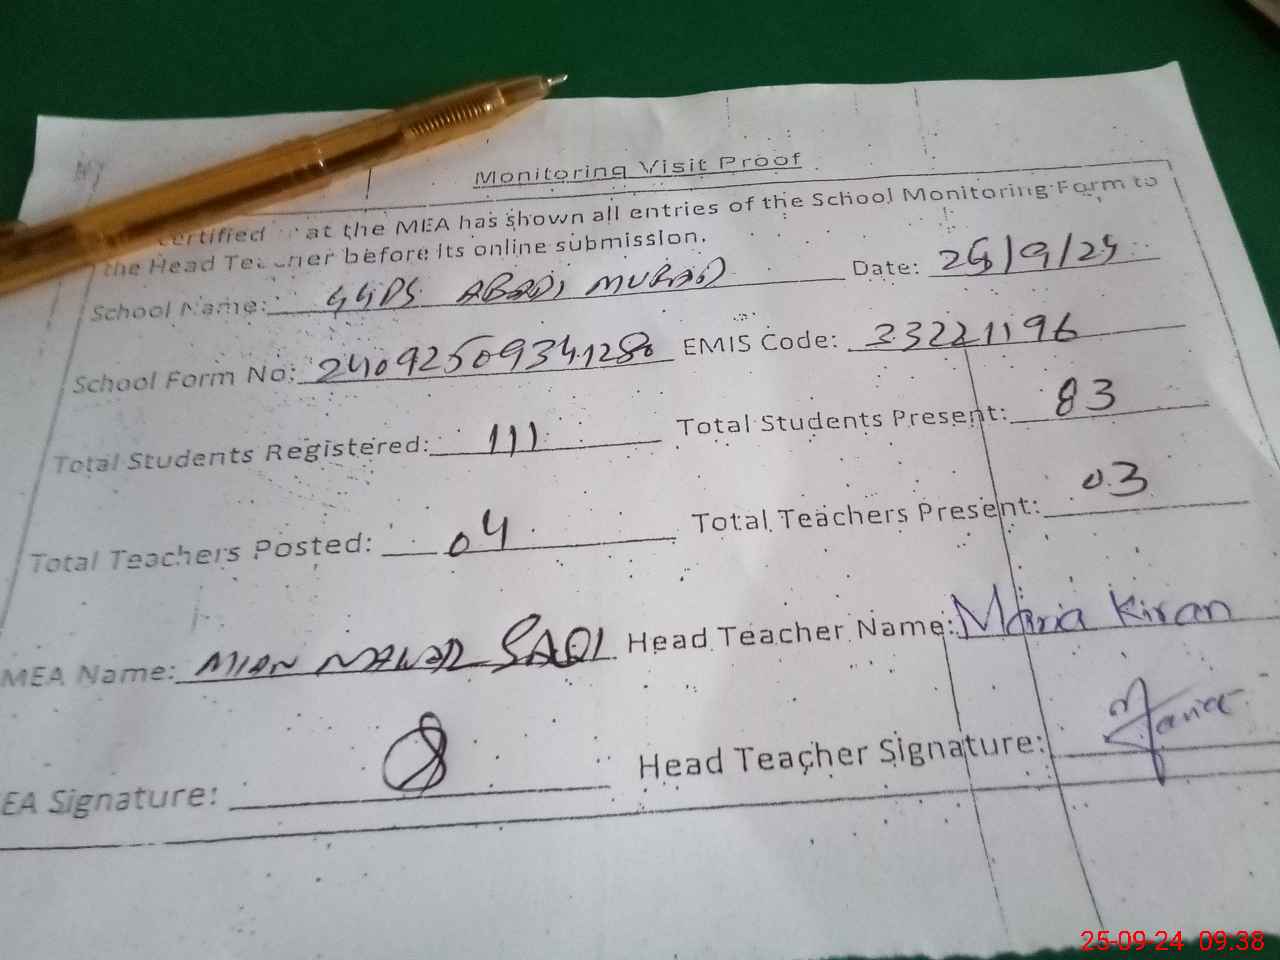 Monitoring Visit Proof
ertified at the MEA has shown all entries of the School Monitoring Form to
the Head Teacher before its online submission.
School Name: GGPS ABADI MURAD Date: 25/9/24
School Form No: 24092509341280 EMIS Code: 33221196
Total Students Registered: 111 Total Students Present: 83
Total Teachers Posted: 04 Total Teachers Present: 03
MEA Name: MIAN NAWAZ SAQI Head Teacher Name: Maria Kiran
EA Signature: Head Teacher Signature: Maria
25-09-24 09.38